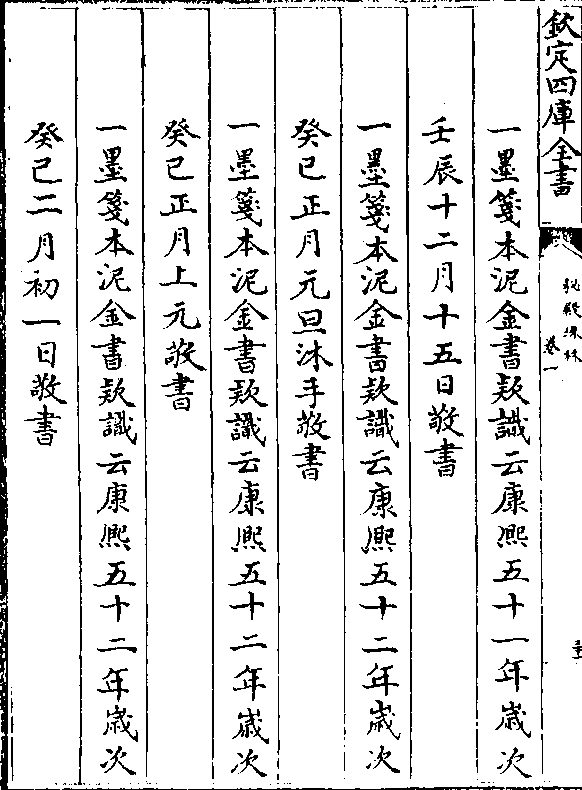 欽定四庫全書
秘殿珠林
卷一
一墨箋本泥金書款識云康熙五十一年歳次
壬辰十二月十五日敬書
一墨箋本泥金書款識云康熙五十二年歳次
癸巳正月元旦沐手敬書
一墨箋本泥金書款識云康熙五十二年歳次
癸巳正月上元敬書
一墨箋本泥金書款識云康熙五十二年歳次
癸巳二月初一日敬書